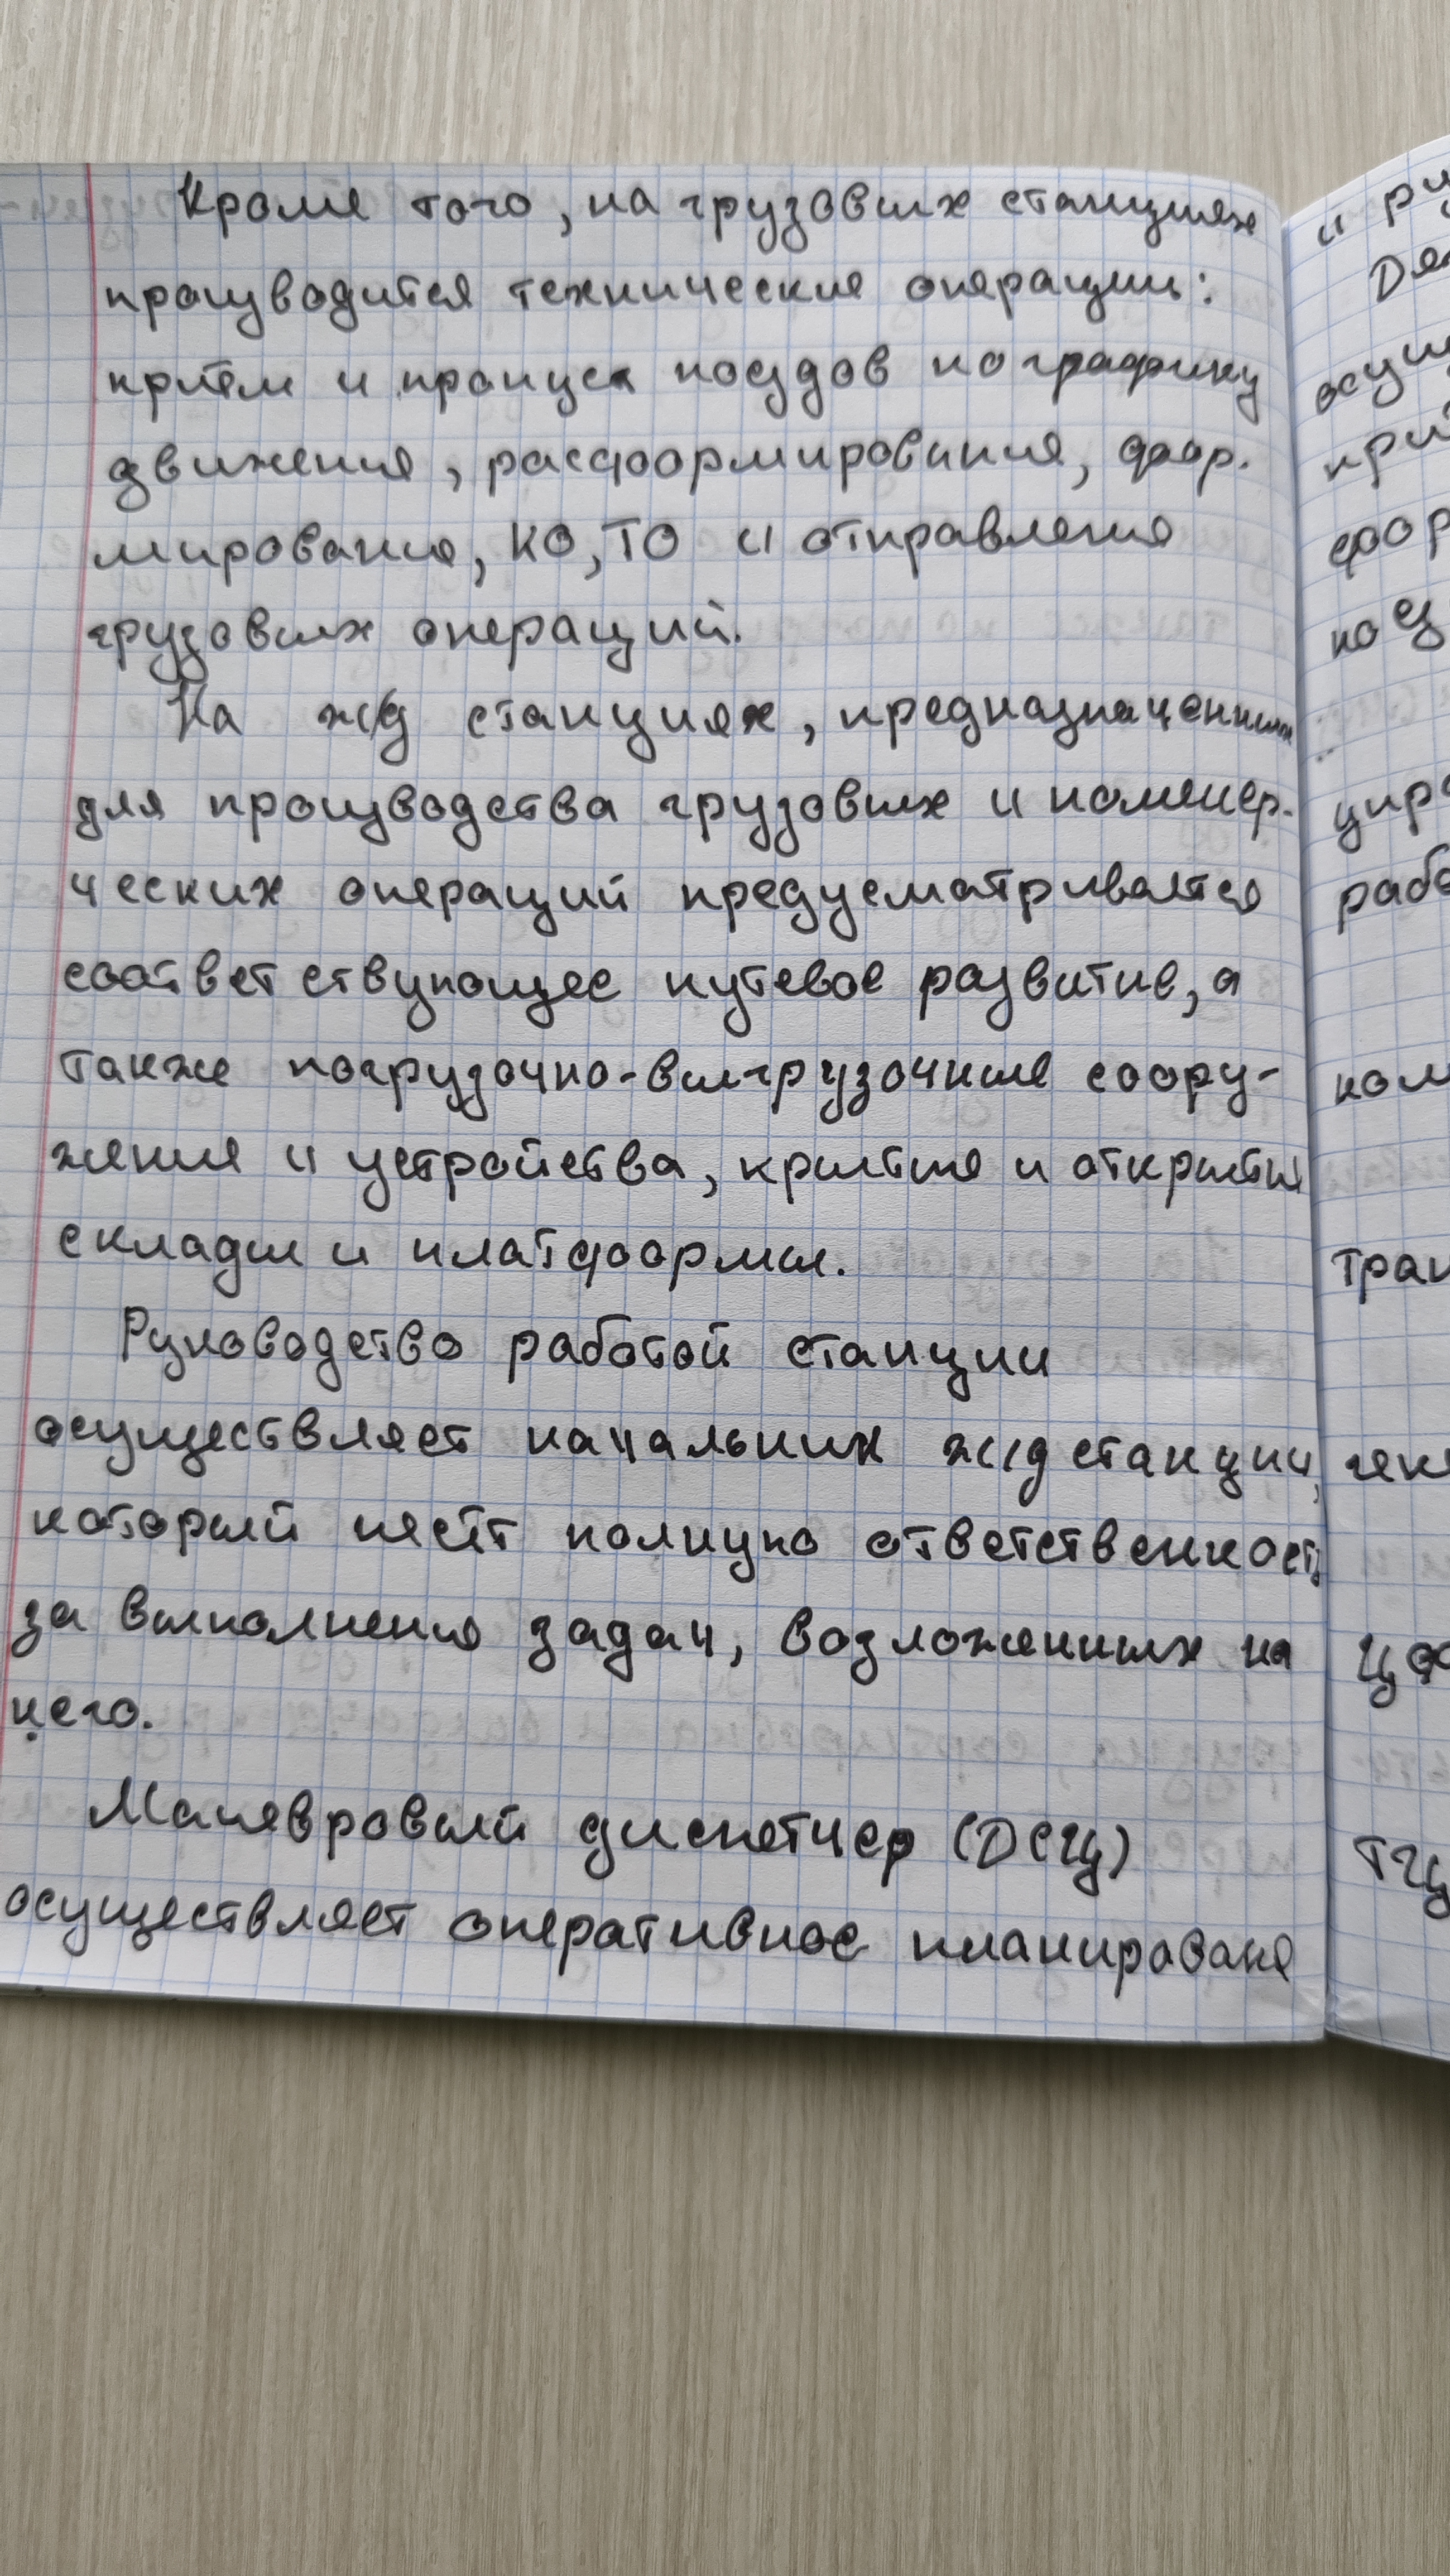 Кроме того, на грузовых станциях
производится технические операции:
приём и пропуск поездов по графику
движения, расформирования, фор-
мирования, КО, ТО и отправления
грузовых операций.
На ж/д станциях, предназначенных
для производства грузовых и коммер-
ческих операций предусматривается
соответствующее путевое развитие, а
также погрузочно-выгрузочные соору-
жения и устройства, крытые и открытые
склады и платформы.
Руководство работой станции
осуществляет начальник ж/д станции,
который несёт полную ответственность
за выполнения задач, возложенных на
него.
Маневровый диспетчер (ДСЦ)
осуществляет оперативное планирование